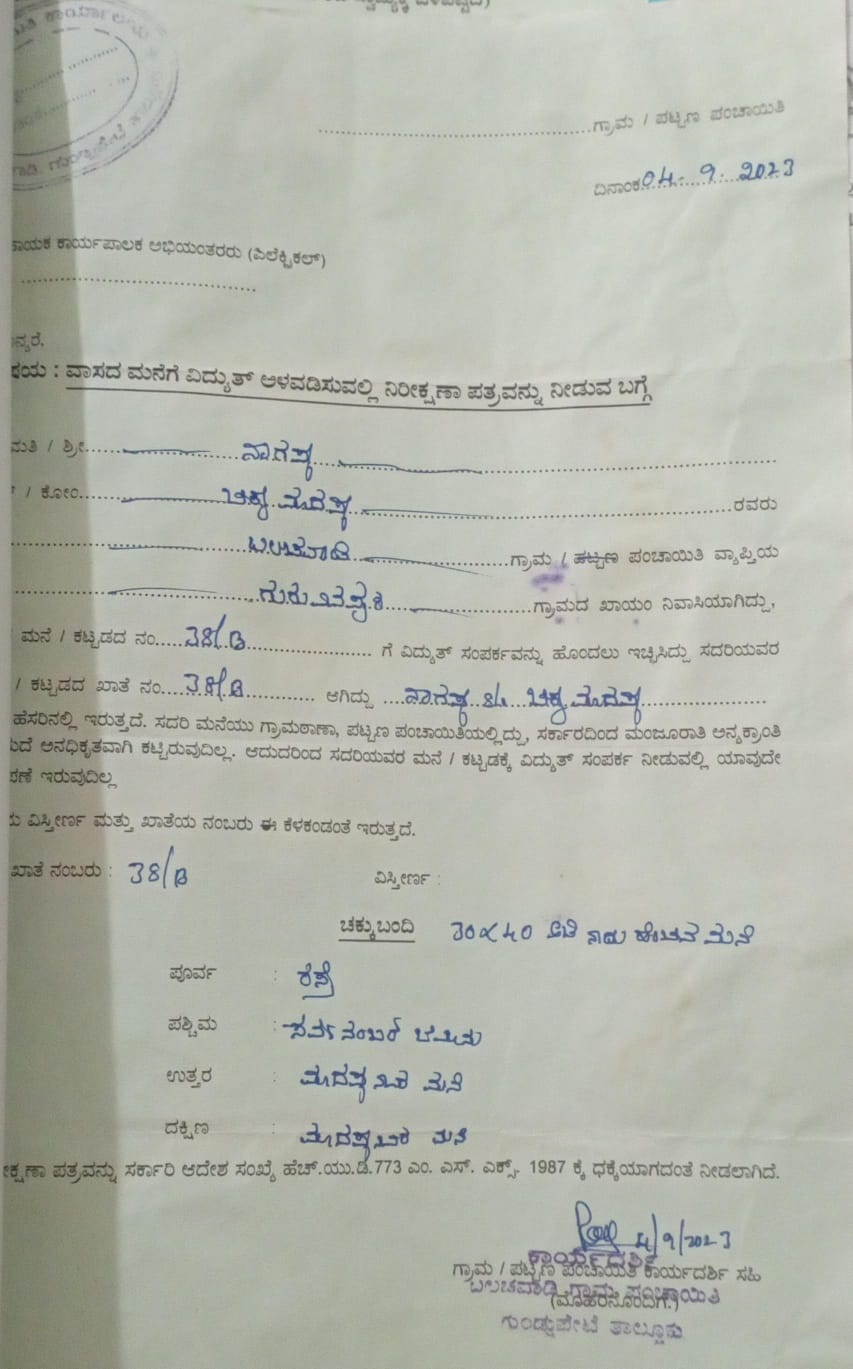 ಗ್ರಾಮ / ಪಟ್ಟಣ ಪಂಚಾಯಿತಿ
ದಿನಾಂಕ 04-9-2023
ಕಾರ್ಯಪಾಲಕ ಅಭಿಯಂತರರು (ಎಲೆಕ್ಟ್ರಿಕಲ್)
ವಾಸದ ಮನೆಗೆ ವಿದ್ಯುತ್ ಅಳವಡಿಸುವಲ್ಲಿ ನಿರೀಕ್ಷಣಾ ಪತ್ರವನ್ನು ನೀಡುವ ಬಗ್ಗೆ
ಮತಿ / ಶ್ರೀ ನಾಗಪ್ಪ
/ ಕೋಂ ಚಿಕ್ಕ ಮಾದಪ್ಪ ರವರು
ಬಲಚವಾಡಿ ಗ್ರಾಮ / ಪಟ್ಟಣ ಪಂಚಾಯಿತಿ ವ್ಯಾಪ್ತಿಯ
ಗ್ರಾಮದ ಖಾಯಂ ನಿವಾಸಿಯಾಗಿದ್ದು,
ಮನೆ / ಕಟ್ಟಡದ ನಂ. 38/B ಗೆ ವಿದ್ಯುತ್ ಸಂಪರ್ಕವನ್ನು ಹೊಂದಲು ಇಚ್ಛಿಸಿದ್ದು ಸದರಿಯವರ
/ ಕಟ್ಟಡದ ಖಾತೆ ನಂ. 38/B ಆಗಿದ್ದು ನಾಗಪ್ಪ S/o ಚಿಕ್ಕ ಮಾದಪ್ಪ
ಹೆಸರಿನಲ್ಲಿ ಇರುತ್ತದೆ. ಸದರಿ ಮನೆಯು ಗ್ರಾಮಠಾಣಾ, ಪಟ್ಟಣ ಪಂಚಾಯಿತಿಯಲ್ಲಿದ್ದು, ಸರ್ಕಾರದಿಂದ ಮಂಜೂರಾತಿ ಅನ್ಯಕ್ರಾಂತಿ
ಅನಧಿಕೃತವಾಗಿ ಕಟ್ಟಿರುವುದಿಲ್ಲ. ಆದುದರಿಂದ ಸದರಿಯವರ ಮನೆ / ಕಟ್ಟಡಕ್ಕೆ ವಿದ್ಯುತ್ ಸಂಪರ್ಕ ನೀಡುವಲ್ಲಿ ಯಾವುದೇ
ಇರುವುದಿಲ್ಲ
ವಿಸ್ತೀರ್ಣ ಮತ್ತು ಖಾತೆಯ ನಂಬರು ಈ ಕೆಳಕಂಡಂತೆ ಇರುತ್ತದೆ.
ಖಾತೆ ನಂಬರು : 38/B ವಿಸ್ತೀರ್ಣ :
ಚಕ್ಕುಬಂದಿ 30x40 ಅಡಿ ಹೆಂಚಿನ ಮನೆ
ಪೂರ್ವ : ರಸ್ತೆ
ಪಶ್ಚಿಮ : ಸರ್ವೆ ನಂಬರ್ ಜಮೀನು
ಉತ್ತರ : ಮಾದಪ್ಪ ನವರ ಮನೆ
ದಕ್ಷಿಣ : ಮಾದಪ್ಪನವರ ಮನೆ
ಪತ್ರವನ್ನು ಸರ್ಕಾರಿ ಆದೇಶ ಸಂಖ್ಯೆ ಹೆಚ್.ಯು.ಡಿ.773 ಎಂ. ಎಸ್. ಎಕ್ಸ್. 1987 ಕ್ಕೆ ಧಕ್ಕೆಯಾಗದಂತೆ ನೀಡಲಾಗಿದೆ.
4/9/2023
ಕಾರ್ಯದರ್ಶಿ
ಗ್ರಾಮ / ಪಟ್ಟಣ ಪಂಚಾಯಿತಿ ಕಾರ್ಯದರ್ಶಿ ಸಹಿ
ಬಲಚವಾಡಿ ಗ್ರಾಮ ಪಂಚಾಯಿತಿ
(ಮೊಹರಿನೊಂದಿಗೆ.)
ಗುಂಡ್ಲುಪೇಟೆ ತಾಲ್ಲೂಕು